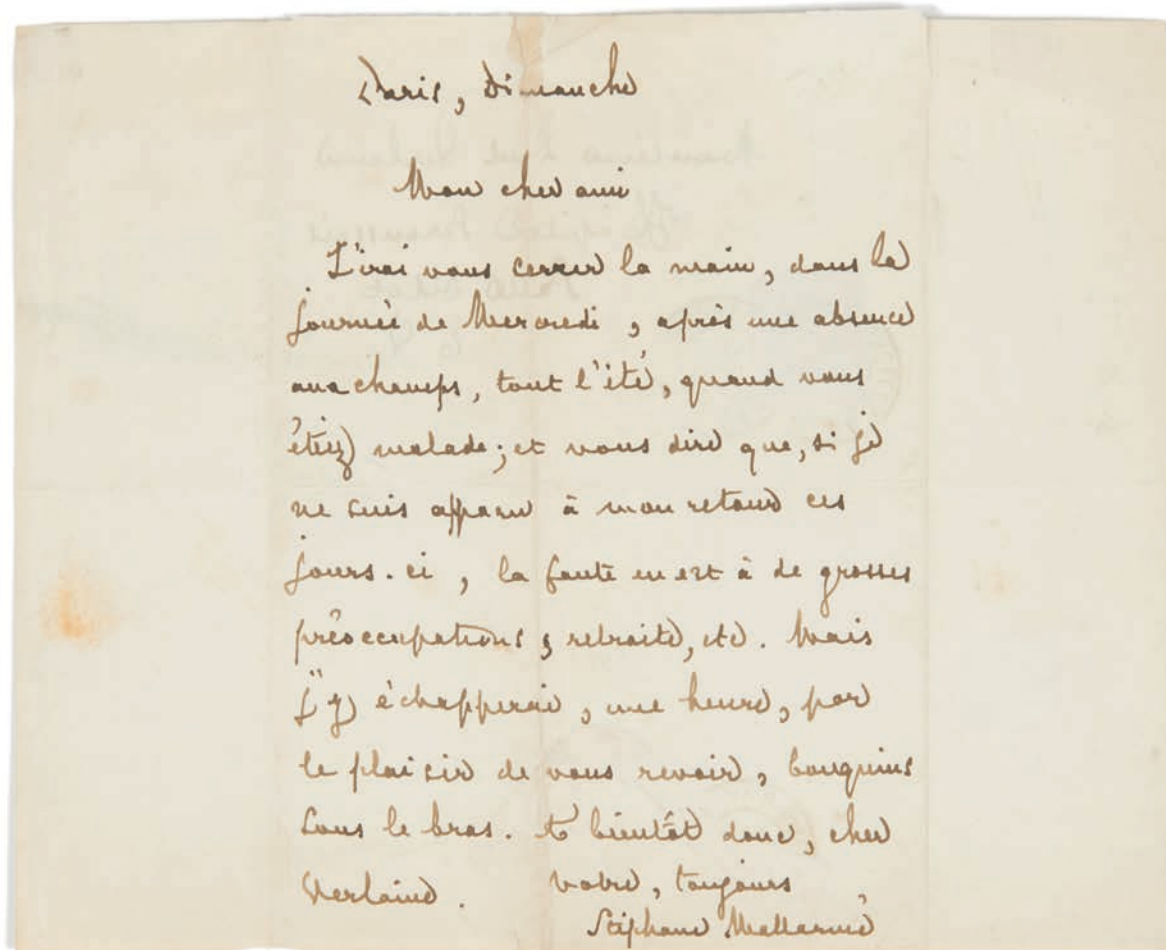 Paris, Dimanche
Mon cher ami
J'irai vous serrer la main, dans la
journée de Mercredi, après une absence
aux champs, tout l'été, quand vous
étiez malade; et vous dire que, si je
ne suis apparu à mon retour ces
jours-ci, la faute en est à de grosses
préoccupations, retraite, etc. Mais
j'y échapperai, une heure, par
le plaisir de vous revoir, bouquins
sous le bras. À bientôt donc, cher
Verlaine. votre, toujours,
Stéphane Mallarmé